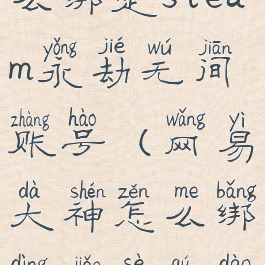 么绑定stea
yǒng jié wú jiān
m永劫无间
zhàng hào wǎng yì
账号（网易
dà shén zěn me bǎng
大神怎么绑